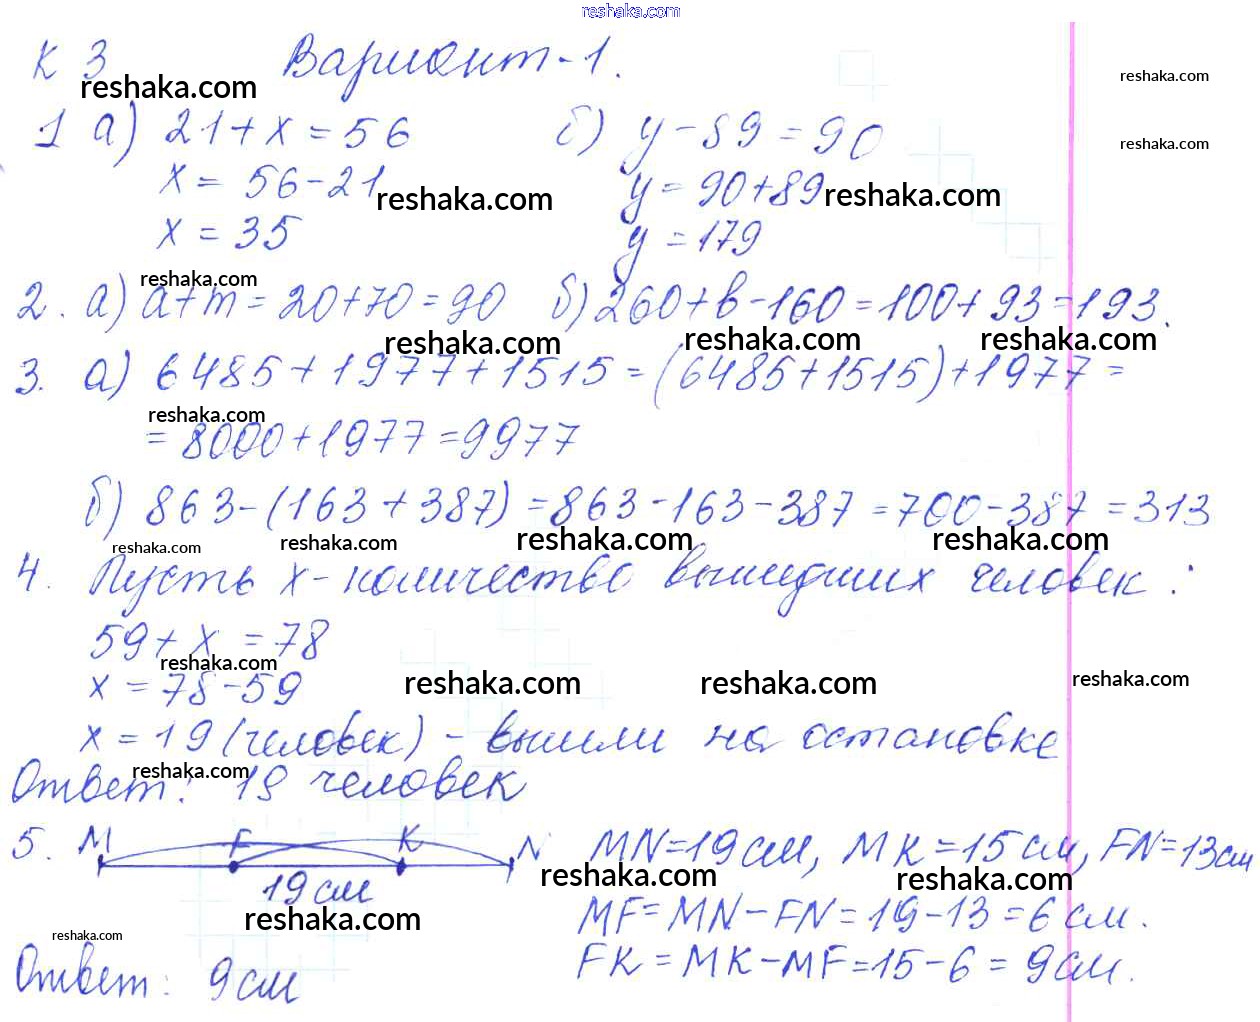 reshaka.com
К 3 Вариант-1.
reshaka.com reshaka.com
1 а) 21+x=56 б) y-89=90
reshaka.com
x= 56-21 y=90+89
reshaka.com reshaka.com
x=35 y=179
reshaka.com
2. а) a+m=20+70=90 б) 260+b-160=100+93=193.
reshaka.com reshaka.com reshaka.com
3. а) 6485+1977+1515=(6485+1515)+1977=
reshaka.com
=8000+1977=9977
б) 863-(163+387)=863-163-387=700-387=313
reshaka.com reshaka.com reshaka.com reshaka.com
4. Пусть x-количество вышедших человек:
59+x=78
reshaka.com
x=78-59
reshaka.com reshaka.com reshaka.com
x=19 (человек) - вышли на остановке
reshaka.com
Ответ: 19 человек
5. M F K N MN=19см, MK=15см, FN=13см
19см
reshaka.com reshaka.com reshaka.com
MF=MN-FN=19-13=6см.
reshaka.com
FK=MK-MF=15-6=9см.
Ответ: 9см